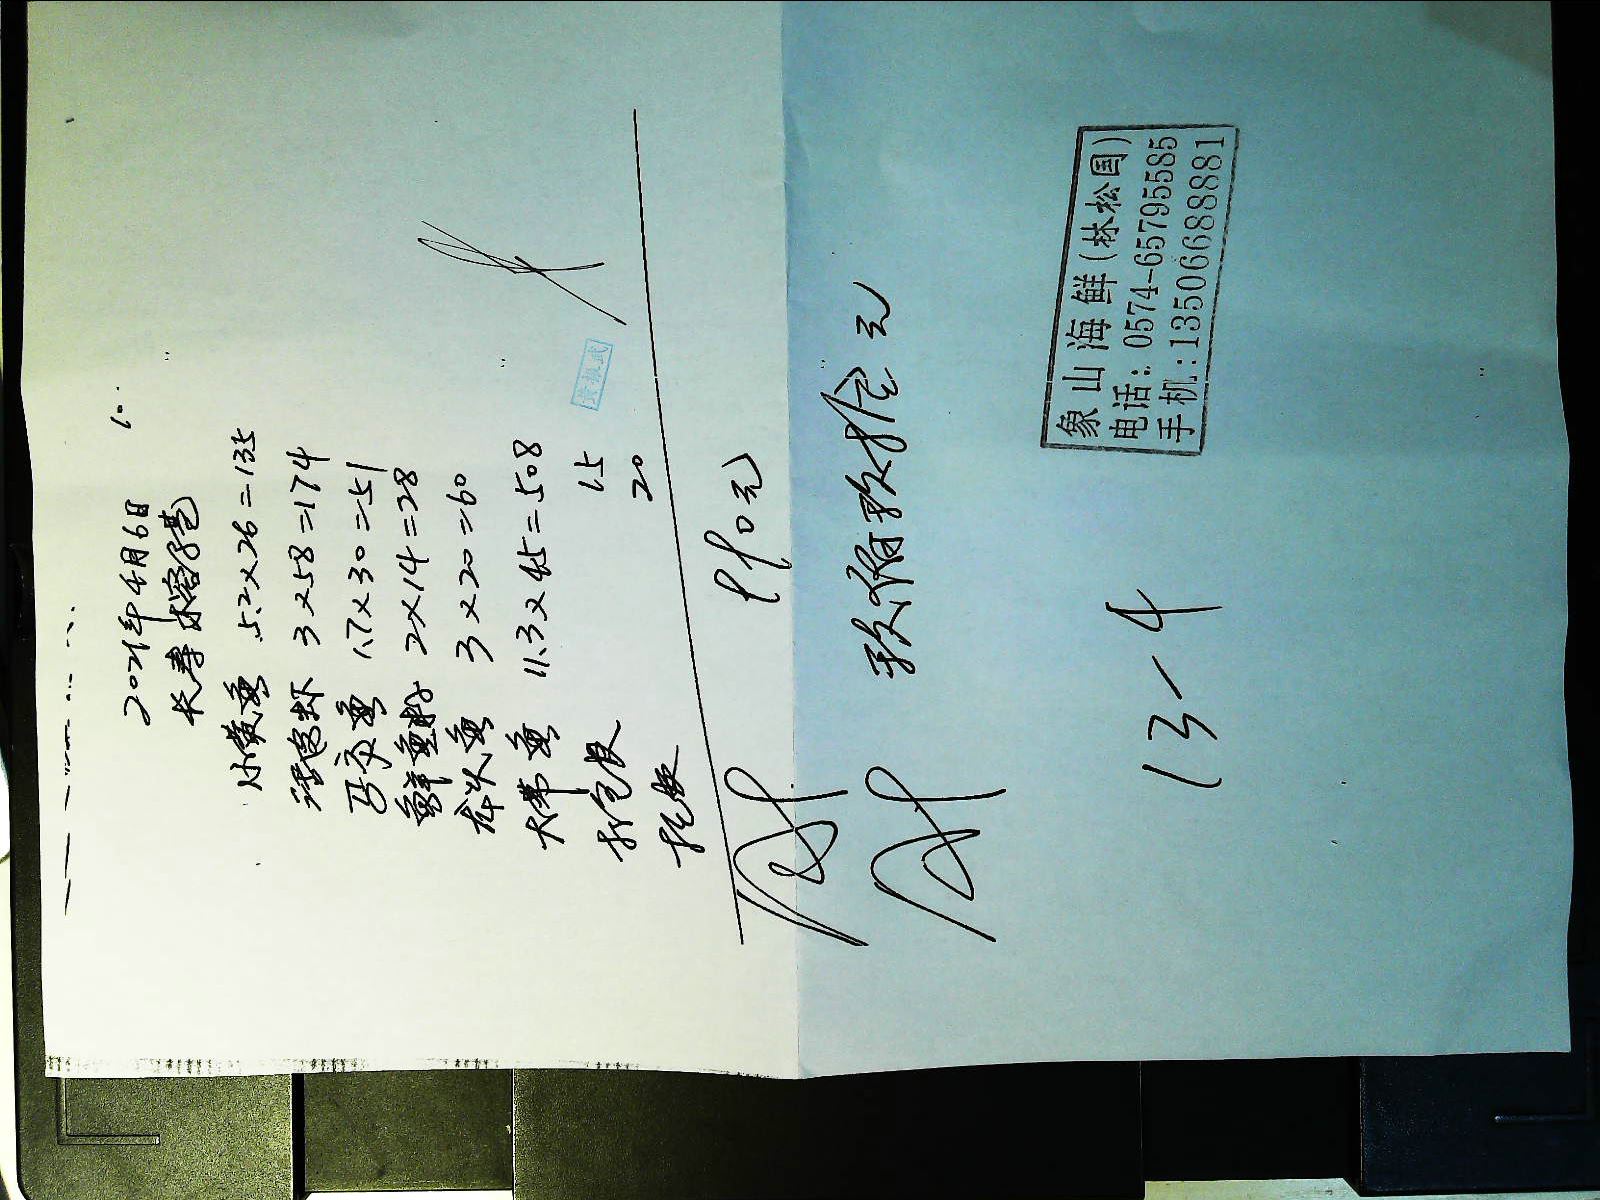 2021年4月6日
小黄鱼 5.2×26=135
3×58=174
1.7×30=51
2×14=28
龙头鱼 3×20=60
大带鱼 11.3×45=508
打包费 15
20
990元
玖佰玖拾元
13-4
黄振武
象山海鲜(林松国)
电话:0574-65795585
手机:13506688881